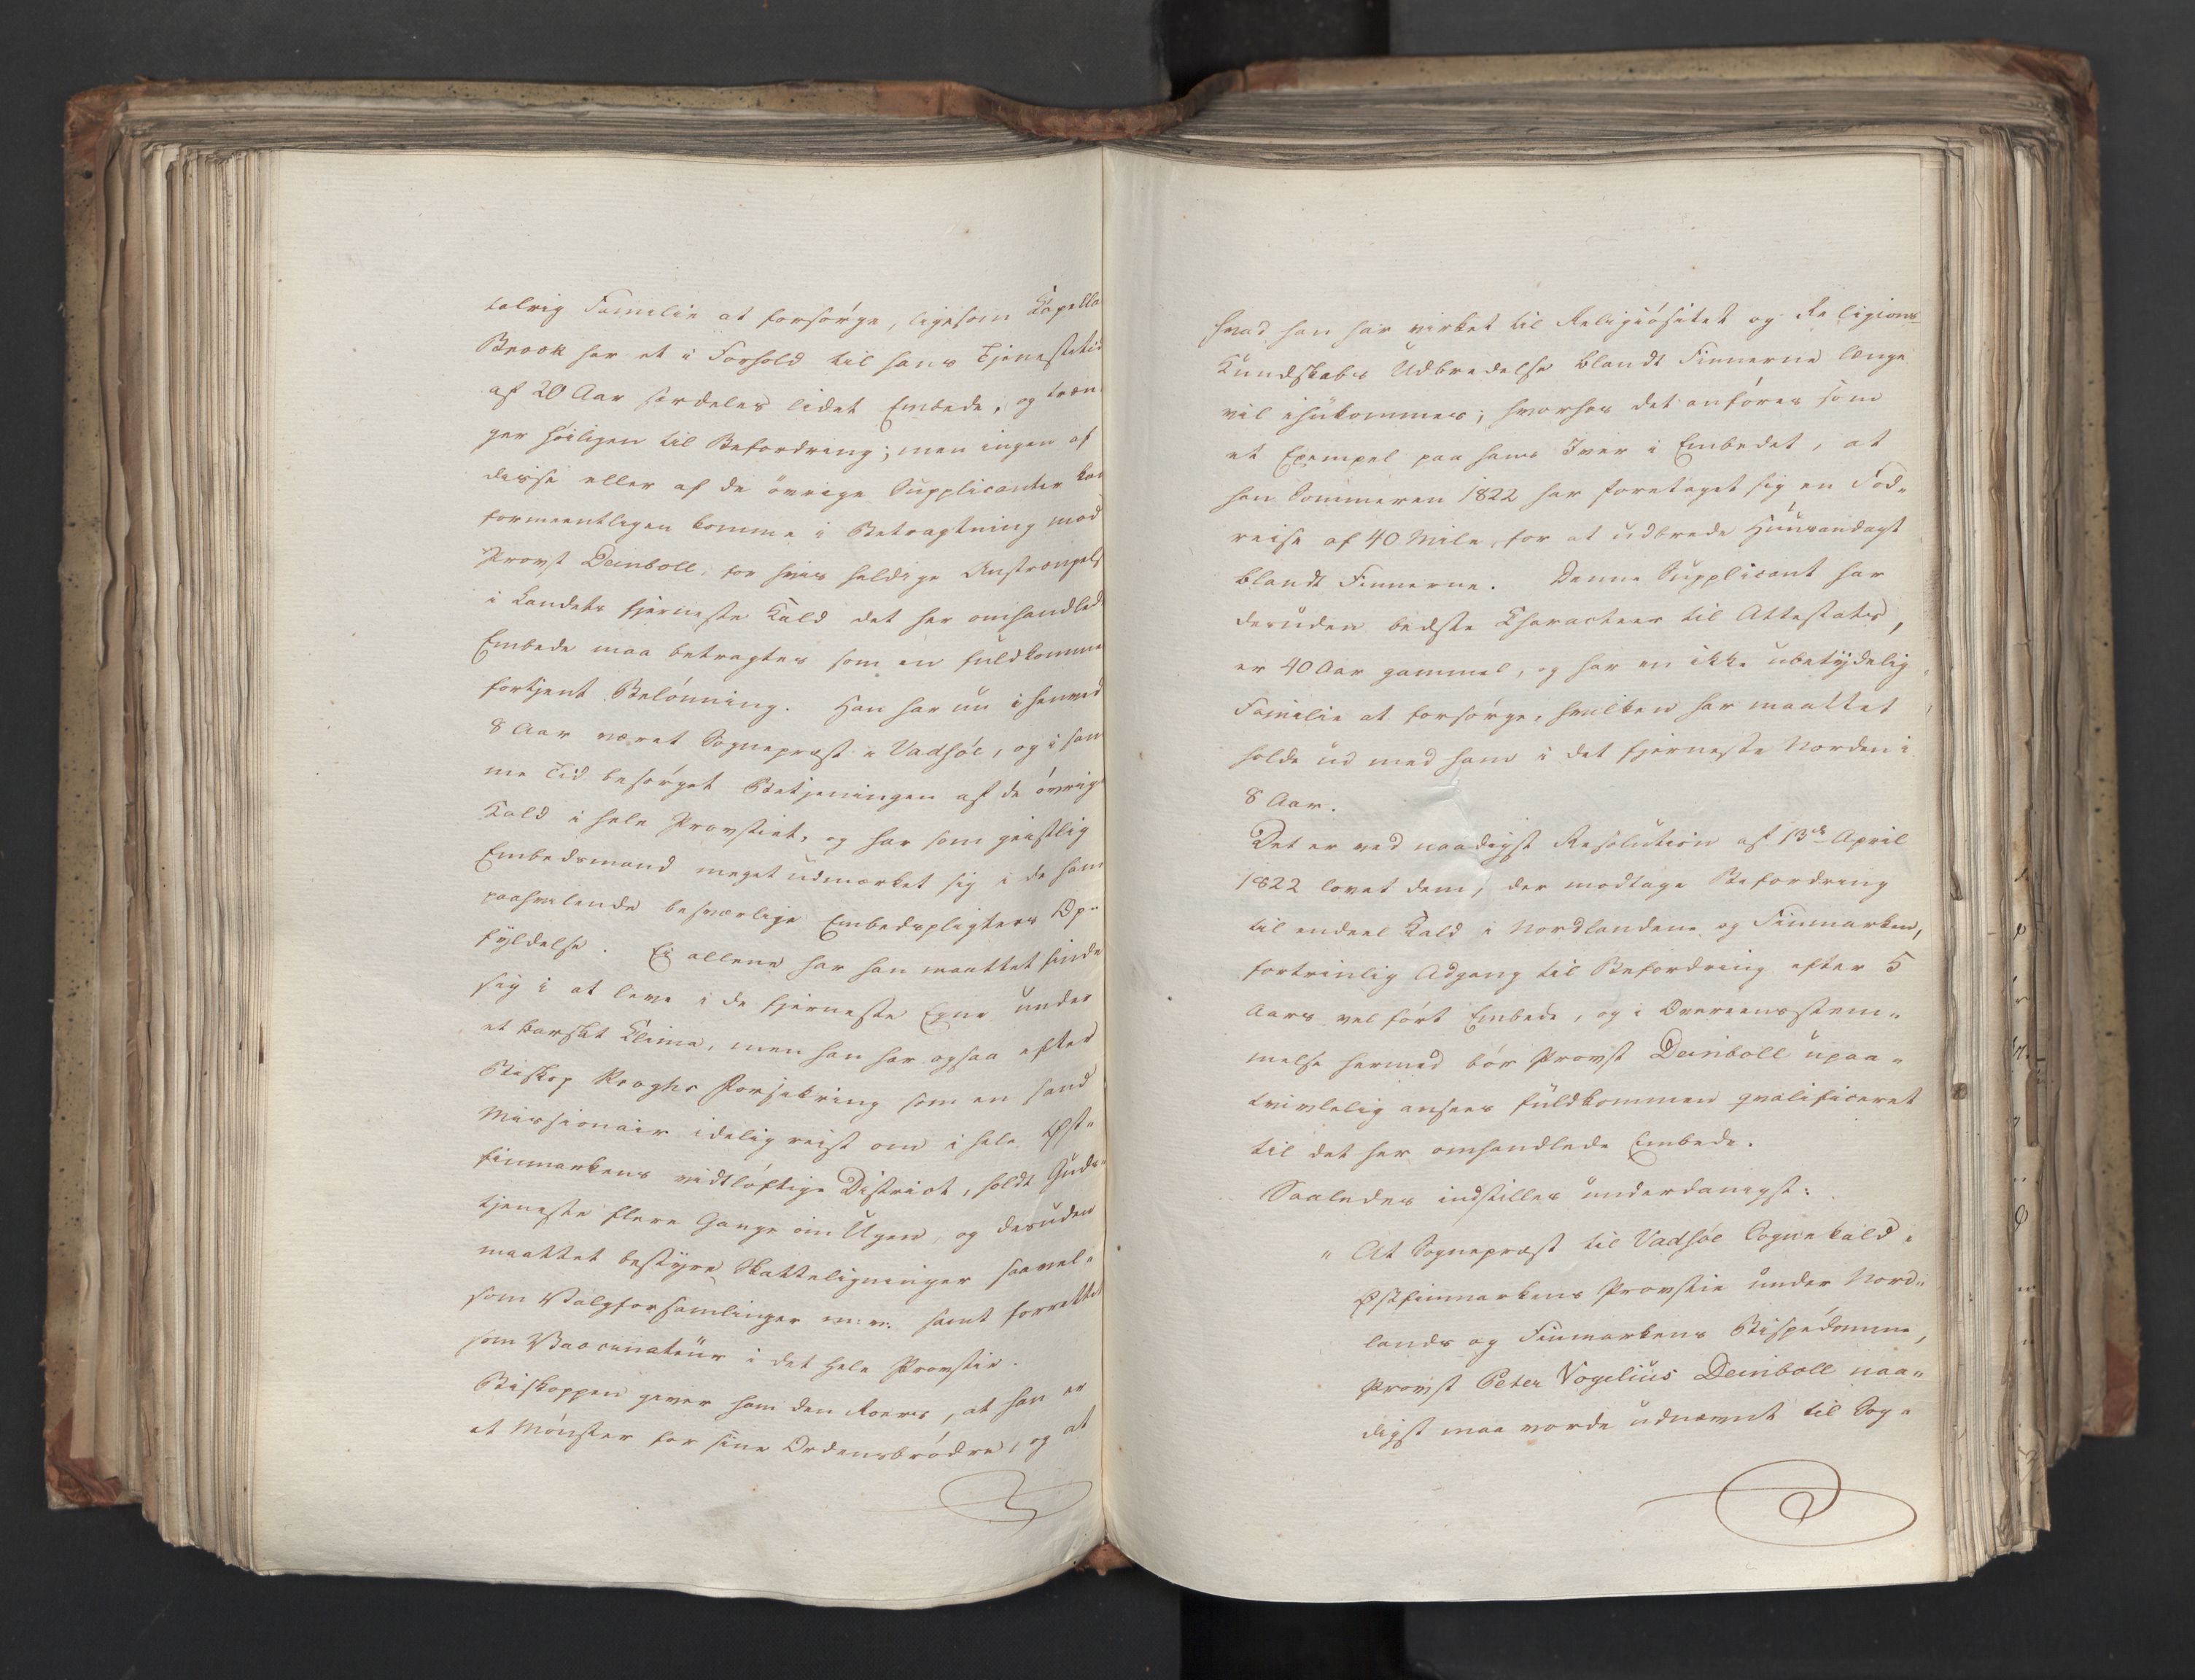 talrig Familie at forsörge, ligesom Kapella
Brook har et i Forhold til hans Tjenestetid
af 20 Aar særdeles lidet Embede, og træn
ger höiligen til Befordring; men ingen af
disse eller af de övrige Supplicanter kan
formeentligen komme i Betragtning mod
Provst Deinboll, for hvis heldige Anstrengels
i Landets fjerneste Kald det her omhandled
Embede maa betragtes som en fuldkomme
fortjent Belönning. Han har nu i henved
8 Aar været Sognepræst i Vadsöe, og i sam
me Tid besörget Betjeningen af de övrige
Kald i hele Provstiet, og har som geistlig
Embedsmand meget udmærket sig i de ham
paahvilende besværlige Embedspligters Op-
fyldelse. Ei allene har han maattet finde
sig i at leve i de fjerneste Egne under
et barskt Klima, men han har ogsaa efter
Biskop Kroghs Forsikring som en sand
Missionair idelig reist om i hele Öst-
finmarkens vidtlöftige District, holdt Guds-
tjeneste flere Gange om Ugen, og desuden
maattet bestyre Skatteligninger saavel-
som Valgforsamlinger m: v: samt forrettet
som Vaccinateur i det hele Provstie.
Biskoppen giver ham den Roes, at han er
et Mönster for sine Ordensbrödre, og at
hvad han har virket til Religiösitet og Religions-
Kundskabs Udbredelse blandt Finnerne længe
vil ihukommes; hvorhos det anföres som
et Exempel paa hans Iver i Embedet, at
han Sommeren 1822 har foretaget sig en Fod-
reise af 40 Mile, for at udbrede Huusandagt
blandt Finnerne. Denne Supplicant har
desuden bedste Characteer til Attestats,
er 40 Aar gammel, og har en ikke ubetydelig
Familie at forsörge, hvilken har maattet
holde ud med ham i det fjerneste Norden i
8 Aar.
Det er ved naadigst Resolution af 13de April
1822 lovet dem, der modtage Befordring
til endeel Kald i Nordlandene og Finmarken,
fortrinlig Adgang til Befordring efter 5
Aars vel fört Embede, og i Overeensstem-
melse hermed bör Provst Deinboll upaa-
tvivlelig ansees fuldkommen qvalificeret
til det her omhandlede Embede.
Saaledes indstilles underdanigst:
" At Sognepræst til Vadsöe Sognekald i
Östfinmarkens Provstie under Nord-
lands og Finmarkens Bispedömme,
Provst Peter Vogelius Deinboll naa-
digst maa vorde udnævnt til Sog-